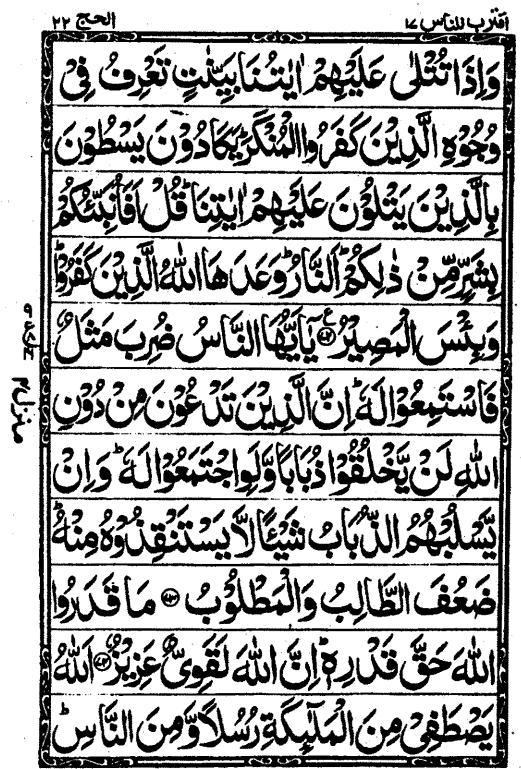 اقترب للناس ١٧
الحج ٢٢
وَاِذَا تُتْلٰى عَلَيْهِمْ اٰيٰتُنَا بَيِّنٰتٍ تَعْرِفُ فِىْ
وُجُوْهِ الَّذِيْنَ كَفَرُوا الْمُنْكَرَ ؕ يَكَادُوْنَ يَسْطُوْنَ
بِالَّذِيْنَ يَتْلُوْنَ عَلَيْهِمْ اٰيٰتِنَا ؕ قُلْ اَفَاُنَبِّئُكُمْ
بِشَرٍّ مِّنْ ذٰلِكُمْ ؕ اَلنَّارُ ؕ وَعَدَهَا اللّٰهُ الَّذِيْنَ كَفَرُوْا ؕ
وَبِئْسَ الْمَصِيْرُ ﴿٧٢﴾ يٰۤاَيُّهَا النَّاسُ ضُرِبَ مَثَلٌ
فَاسْتَمِعُوْا لَهٗ ؕ اِنَّ الَّذِيْنَ تَدْعُوْنَ مِنْ دُوْنِ
اللّٰهِ لَنْ يَّخْلُقُوْا ذُبَابًا وَّلَوِ اجْتَمَعُوْا لَهٗ ؕ وَاِنْ
يَّسْلُبْهُمُ الذُّبَابُ شَيْـًٔا لَّا يَسْتَنْقِذُوْهُ مِنْهُ ؕ
ضَعُفَ الطَّالِبُ وَالْمَطْلُوْبُ ﴿٧٣﴾ مَا قَدَرُوا
اللّٰهَ حَقَّ قَدْرِهٖ ؕ اِنَّ اللّٰهَ لَقَوِىٌّ عَزِيْزٌ ﴿٧٤﴾ اَللّٰهُ
يَصْطَفِىْ مِنَ الْمَلٰٓئِكَةِ رُسُلًا وَّمِنَ النَّاسِ ؕ
منزل ٤